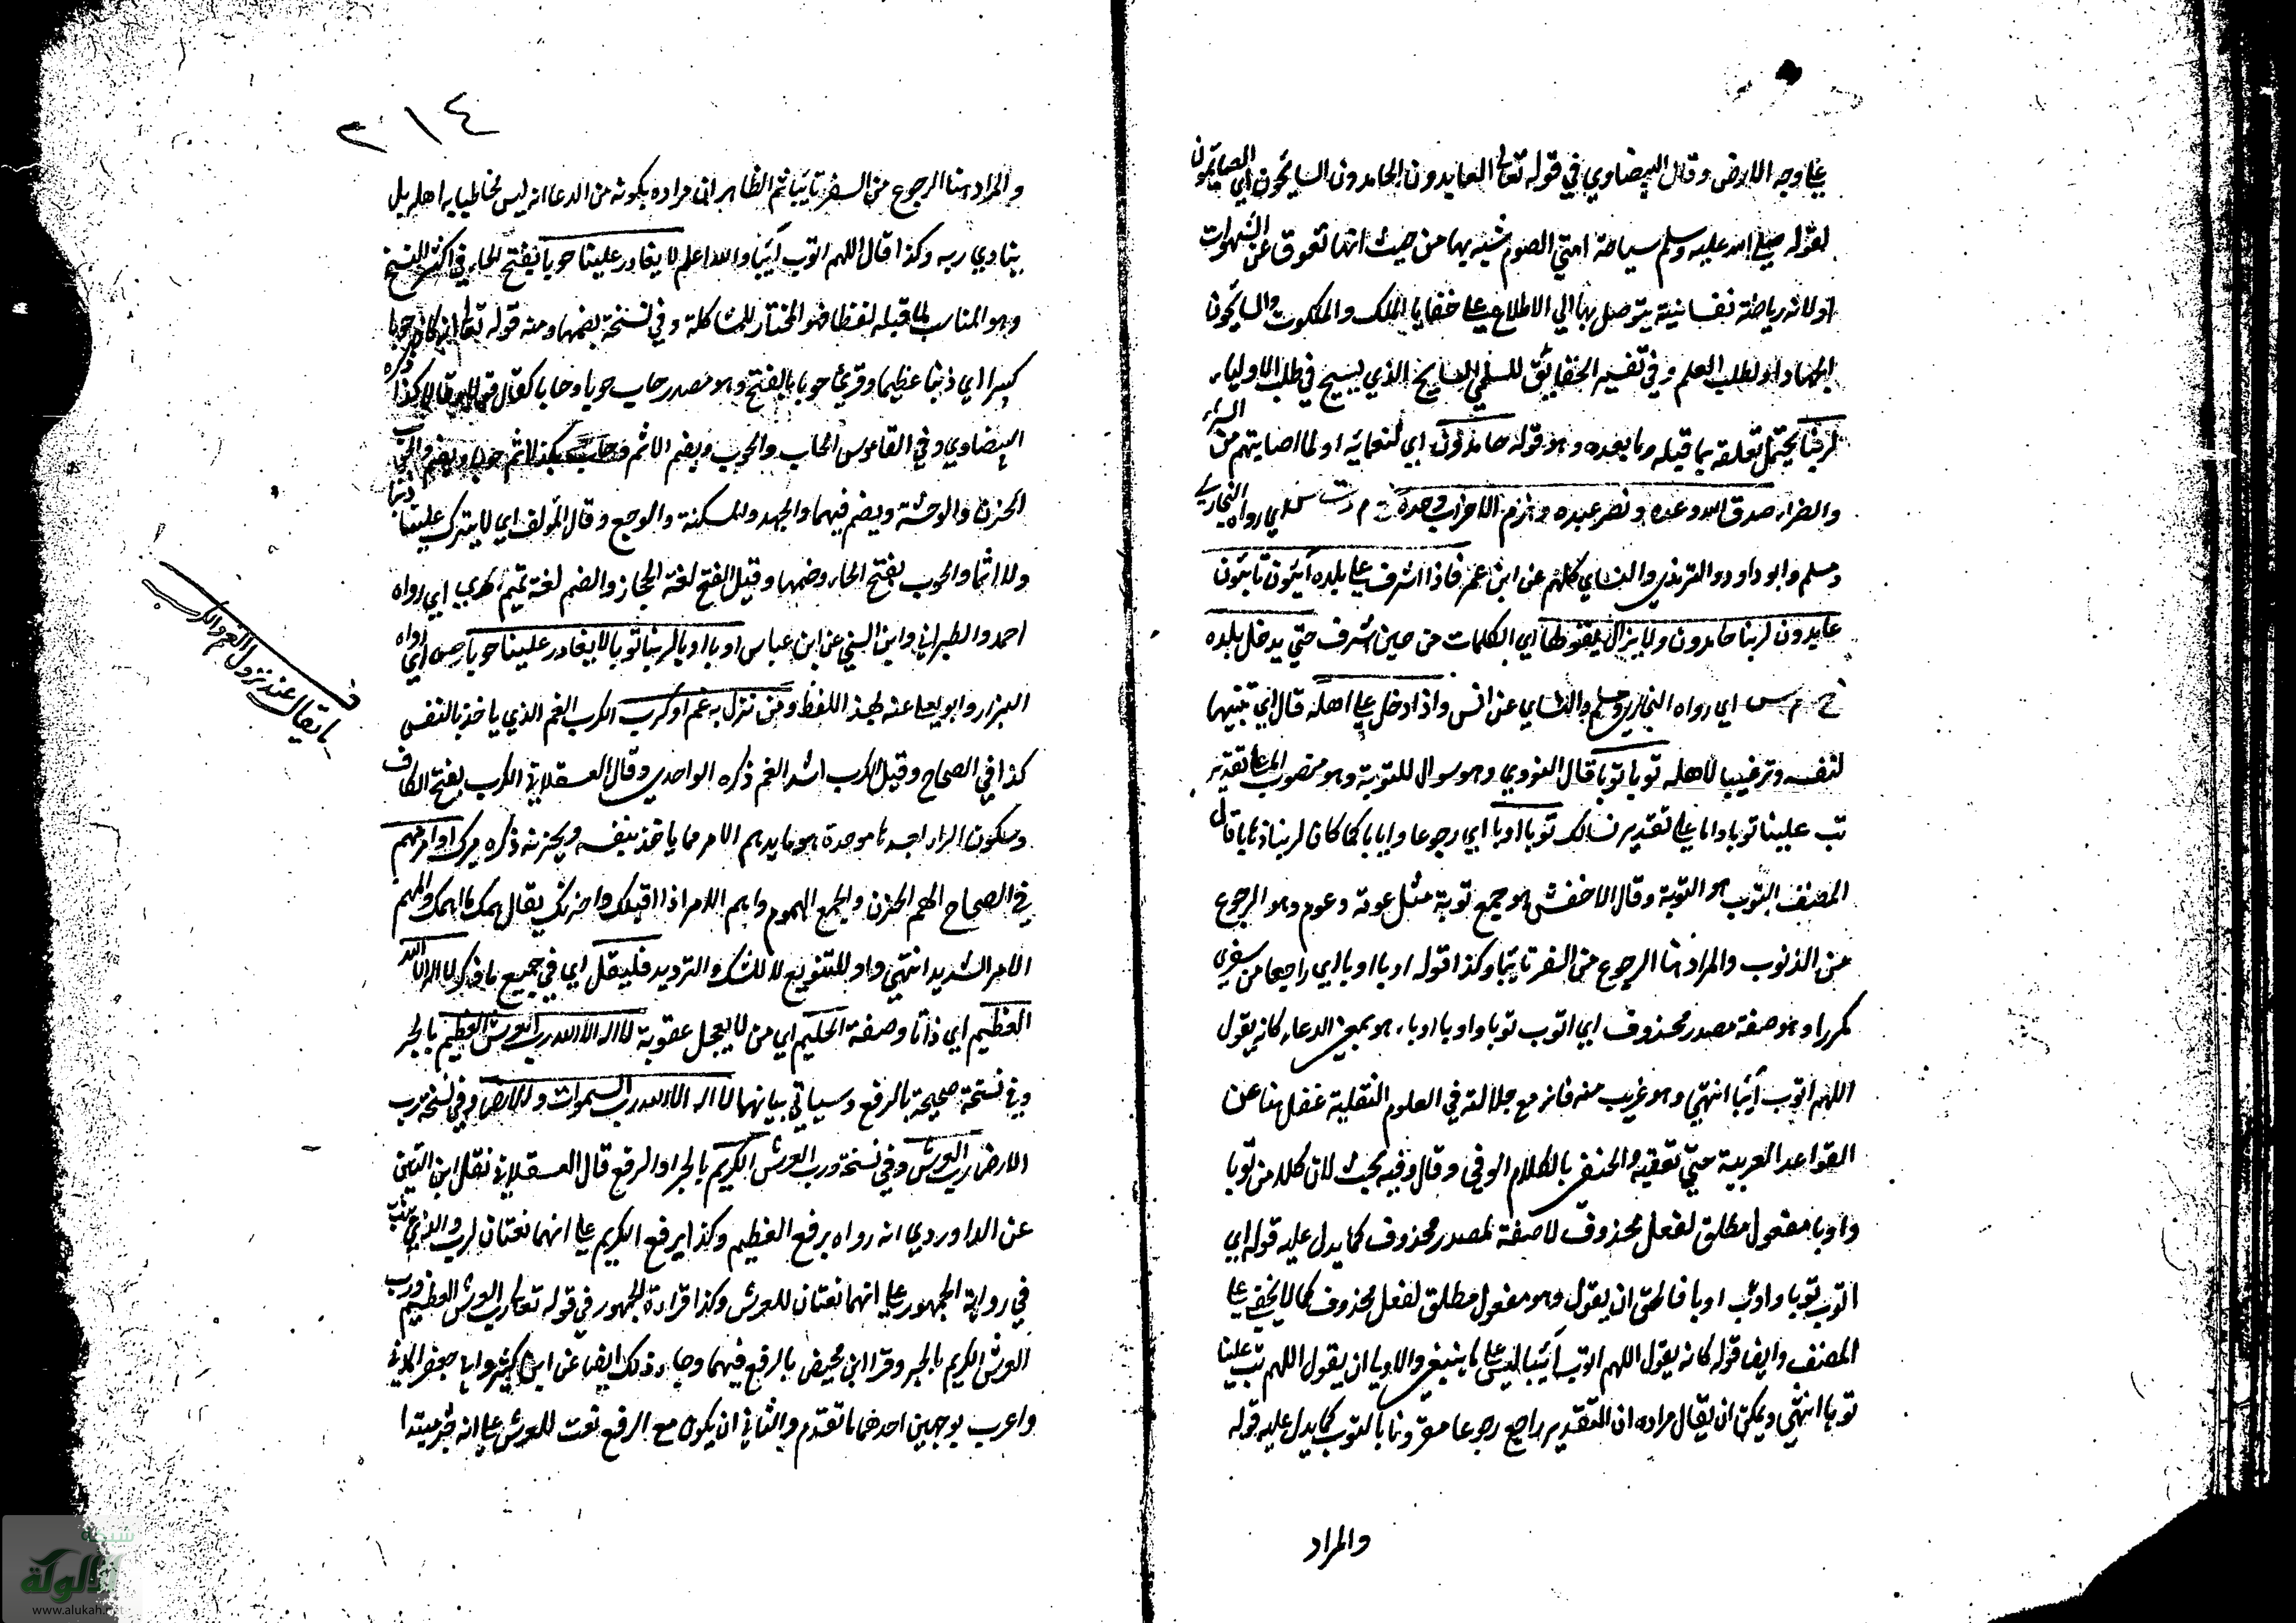 على وجه الارض وقال البيضاوي في قوله تعالى العابدون الحامدون السايحون اي الصايمون
لقوله صلى الله عليه وسلم سياحة امتي الصوم شبه بها من حيث انها تعوق عن الشهوات
او لانه رياضة نفسانية يتوصل بها الي الاطلاع على خفايا الملك والملكوت والسايحون
للجهاد او لطلب العلم وفي تفسير الحقائق للسلمي السايح الذي يسيح في طلب الاولياء
لربنا يحتمل تعلقه بما قبله وما بعده وهو قوله حامدون اي لنعمائه او لما اصابتهم من السراء
والضراء صدق الله وعده ونصر عبده وهزم الاحزاب وحده خ م د ت س اي رواه البخاري
ومسلم وابو داود والترمذي والنساي كلهم عن ابن عمر فاذا اشرف على بلده آئبون تائبون
عابدون لربنا حامدون ولا يزال يقولها اي الكلمات من حين اشرف حتي يدخل بلده
خ م س اي رواه البخاري ومسلم والنساي عن انس واذا دخل على اهله قال اي تنبيها
لنفسه وترغيبا لاهله توبا توبا قال النووي وهو سوال للتوبة وهو منصوب اما على تقدير
تب علينا توبا واما على تقدير نسالك توبا اوبا اي رجوعا وايابا كما كان لربنا ذهابا قال
المصنف التوب هو التوبة وقال الاخفش هو جمع توبة مثل عومة وعوم وهو الرجوع
من الذنوب والمراد هنا الرجوع من السفر تايبا وكذا قوله اوبا اوبا اي راجعا من سفري
مكررا وهو صفة مصدر محذوف اي اتوب توبا واوبا اوباء هو بمعنى الدعاء كانه يقول
اللهم اتوب آئبا انتهي وهو غريب منه فانه مع جلالته في العلوم النقلية غفل هنا عن
القواعد العربية حتي تعقبه الحنفي بالكلام الوفي وقال وفيه بحث لان كلا من توبا
واوبا مفعول مطلق لفعل محذوف لا صفة لمصدر محذوف كما يدل عليه قوله اي
اتوب توبا واوب اوبا فالحق ان يقول وهو مفعول مطلق لفعل محذوف كما لا يخفى على
المصنف وايضا قوله كانه يقول اللهم اتوب آئبا ليس على ما ينبغي والاولى ان يقول اللهم تب علينا
توبا انتهي ويمكن ان يقال مراده ان التقدير راجع رجوعا مقرونا بالتوب كما يدل عليه قوله
والمراد
٢١٤
والمراد هنا الرجوع من السفر تائبا ثم الظاهر ان مراده بكونه من الدعا انه ليس مخاطبا به اهله بل
ينادي ربه وكذا قال اللهم اتوب آئبا والله اعلم لا يغادر علينا حوبا بفتح الحاء في اكثر النسخ
وهو المناسب لما قبله لفظا فهو المختار للمشاكلة وفي نسخة بضمها ومنه قوله تعالى انه كان حوبا
كبيرا اي ذنبا عظيما وقرئ حوبا بالفتح وهو مصدر حاب حوبا وحابا كقال قولا وقالا كذا ذكره
البيضاوي وفي القاموس الحاب والحوب ويضم الاثم وحاب بكذا اثم حوبا ويضم والحوب
الحزن والوحشة ويضم فيهما والجهد والمسكنة والوجع وقال المولف اي لا يترك علينا ذنبا
ولا اثما والحوب بفتح الحاء وضمها وقيل الفتح لغة الحجاز والضم لغة تميم اط ي اي رواه
احمد والطبراني وابن السني عن ابن عباس اوبا اوبا لربنا توبا لا يغادر علينا حوبا ر ص اي رواه
البزار وابو يعلى عنه بهذا اللفظ ومن نزل به غم او كرب الكرب الغم الذي ياخذ بالنفس
كذا في الصحاح وقيل الكرب اشد الغم ذكره الواحدي وقال العسقلاني الكرب بفتح الكاف
وسكون الراء بعدها موحدة هو ما يدهم الامر مما ياخذ بنفسه ويحزنه ذكره ميرك او امر مهم
في الصحاح الهم الحزن والجمع الهموم واهم الامر اذا اقلقك واحزنك يقال همك ما اهمك والمهم
الامر الشديد انتهي واو للتنويع لا للشك والترديد فليقل اي في جميع ما ذكر لا اله الا الله
العظيم اي ذاتا وصفة الحليم اي من لا يعجل عقوبة لا اله الا الله رب العرش العظيم بالجر
وفي نسخة صحيحة بالرفع وسياتي بيانهما لا اله الا الله رب السموات والارض وفي نسخة ورب
الارض رب العرش وفي نسخة ورب العرش الكريم بالجر او الرفع قال العسقلاني نقل ابن التين
عن الداوردي انه رواه برفع العظيم وكذا برفع الكريم على انهما نعتان لرب والذي ثبت
في رواية الجمهور على انهما نعتان للعرش وكذا قراءة الجمهور في قوله تعالى رب العرش العظيم ورب
العرش الكريم بالجر وقرا ابن محيصن بالرفع فيهما وجاء ذلك ايضا عن ابن كثير وابي جعفر المدني
واعرب بوجهين احدهما ما تقدم والثاني ان يكون مع الرفع نعت للعرش على انه خبر مبتدا
ما يقال عند نزول الغم والكرب
شبكة
الألوكة
www.alukah.net